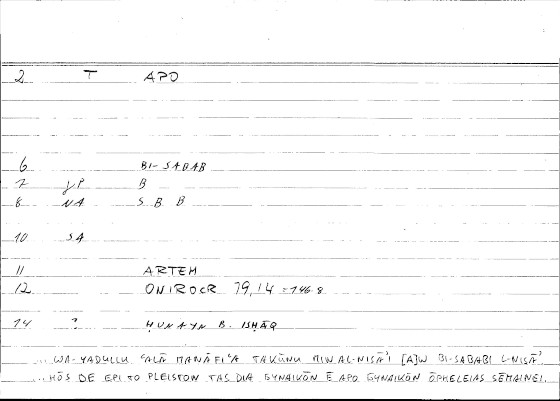 2 T APO
6 BI-SABAB
7 YP B
8 NA S B B
10 SA
11 ARTEM
12 ONIROCR 79,14 = 146.8
14 ? ḤUNAYN B. ISḤĀQ
... WA-YADULLU ʿALĀ MANĀFIʿA TAKŪNU MIN AL-NISĀʾI [A]W BI-SABABI L-NISĀʾ
... HŌS DE EPI TO PLEISTON TAS DIA GYNAIKŌN Ē APO GYNAIKŌN ŌPHELEIAS SĒMAINEI.